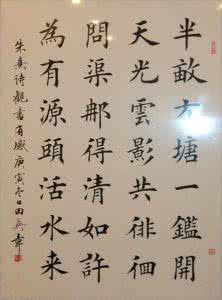 半畝方塘一鑑開
天光雲影共徘徊
問渠那得清如許
為有源頭活水来
朱熹诗觀書有感庚寅冬日